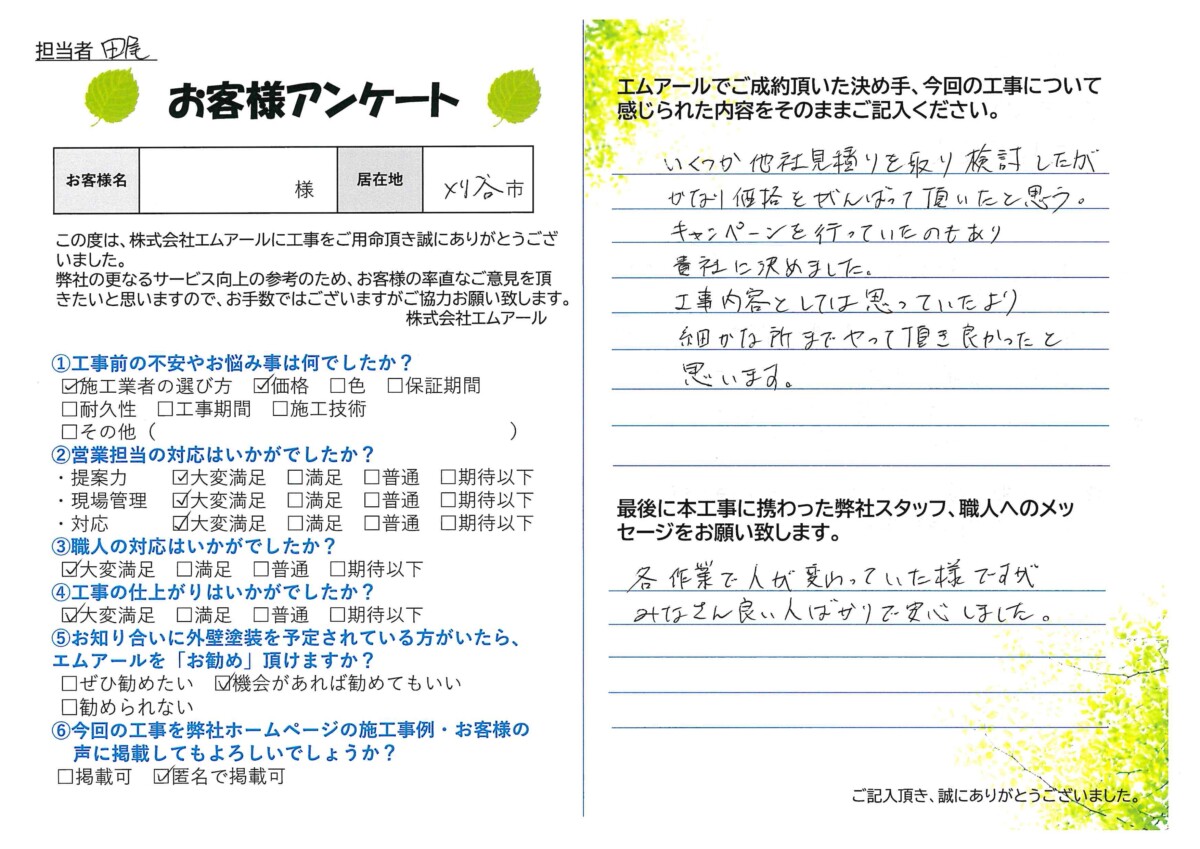 担当者 田尾
お客様アンケート
お客様名 様 居住地 刈谷市
この度は、株式会社エムアールに工事をご用命頂き誠にありがとうござ
いました。
弊社の更なるサービス向上の参考のため、お客様の率直なご意見を頂
きたいと思いますので、お手数ではございますがご協力お願い致します。
株式会社エムアール
①工事前の不安やお悩み事は何でしたか？
☑施工業者の選び方 ☑価格 □色 □保証期間
□耐久性 □工事期間 □施工技術
□その他（ ）
②営業担当の対応はいかがでしたか？
・提案力 ☑大変満足 □満足 □普通 □期待以下
・現場管理 ☑大変満足 □満足 □普通 □期待以下
・対応 ☑大変満足 □満足 □普通 □期待以下
③職人の対応はいかがでしたか？
☑大変満足 □満足 □普通 □期待以下
④工事の仕上がりはいかがでしたか？
☑大変満足 □満足 □普通 □期待以下
⑤お知り合いに外壁塗装を予定されている方がいたら、
エムアールを「お勧め」頂けますか？
□ぜひ勧めたい ☑機会があれば勧めてもいい
□勧められない
⑥今回の工事を弊社ホームページの施工事例・お客様の
声に掲載してもよろしいでしょうか？
□掲載可 ☑匿名で掲載可
エムアールでご成約頂いた決め手、今回の工事について
感じられた内容をそのままご記入ください。
いくつか他社見積りを取り検討したが
かなり価格をがんばって頂いたと思う。
キャンペーンを行っていたのもあり
貴社に決めました。
工事内容としては思っていたより
細かな所までやって頂き良かったと
思います。
最後に本工事に携わった弊社スタッフ、職人へのメッ
セージをお願い致します。
各作業で人が変わっていた様ですが
みなさん良い人ばかりで安心しました。
ご記入頂き、誠にありがとうございました。